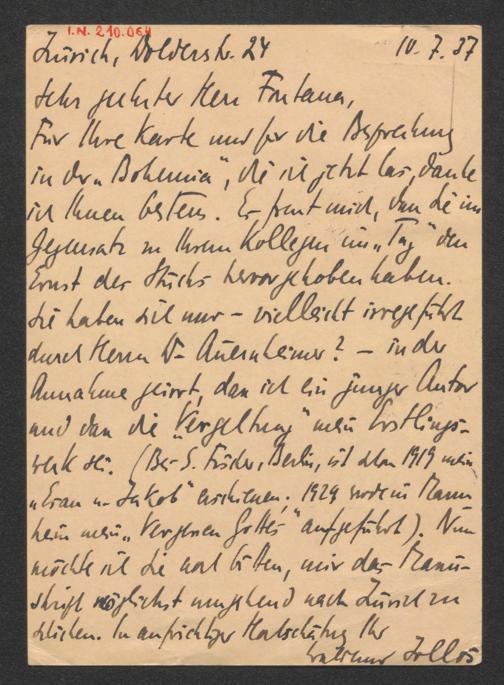 I.N. 210.064
Zürich, Dolderstr. 24 10.7.37
Sehr geehrter Herr Fontana,
Für Ihre Karte und für die Besprechung
in der „Bohemia", die ich jetzt las, danke
ich Ihnen bestens. Es freut mich, dass Sie im
Gegensatz zu Ihrem Kollegen im „Tag" den
Ernst des Stücks hervorgehoben haben.
Sie haben sich nur – vielleicht irregeführt
durch Herrn Dr Auernheimer? – in der
Annahme geirrt, dass ich ein junger Autor
und dass die „Vergeltung" mein Erstlings-
werk sei. (Bei S. Fischer, Berlin, ist schon 1919 mein
„Esau u. Jakob" erschienen, 1929 wurde in Mann
heim mein „Vergessen Gottes" aufgeführt). Nun
möchte ich Sie noch bitten, mir das Manu-
skript möglichst umgehend nach Zürich zu
schicken. In aufrichtiger Hochschätzung Ihr